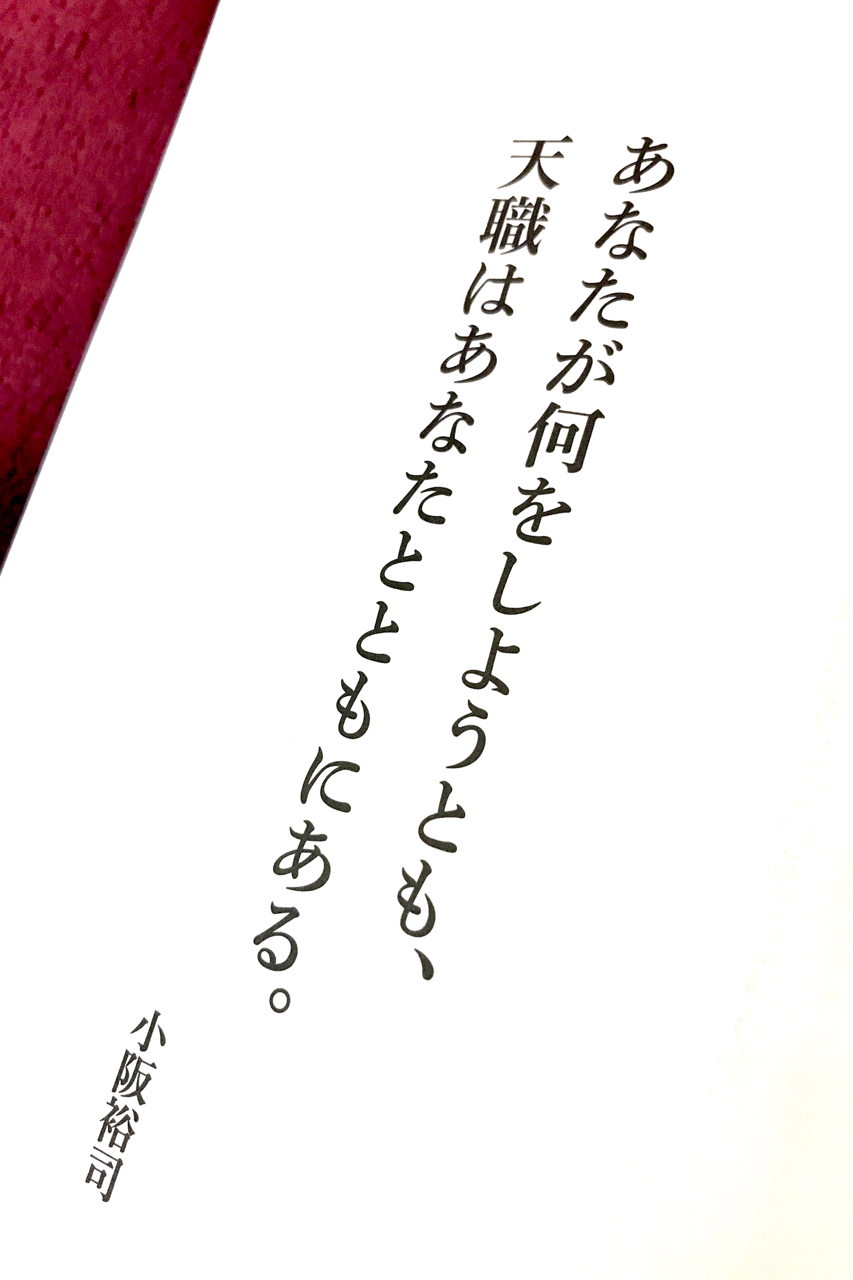 あなたが何をしようとも、
天職はあなたとともにある。
小阪裕司